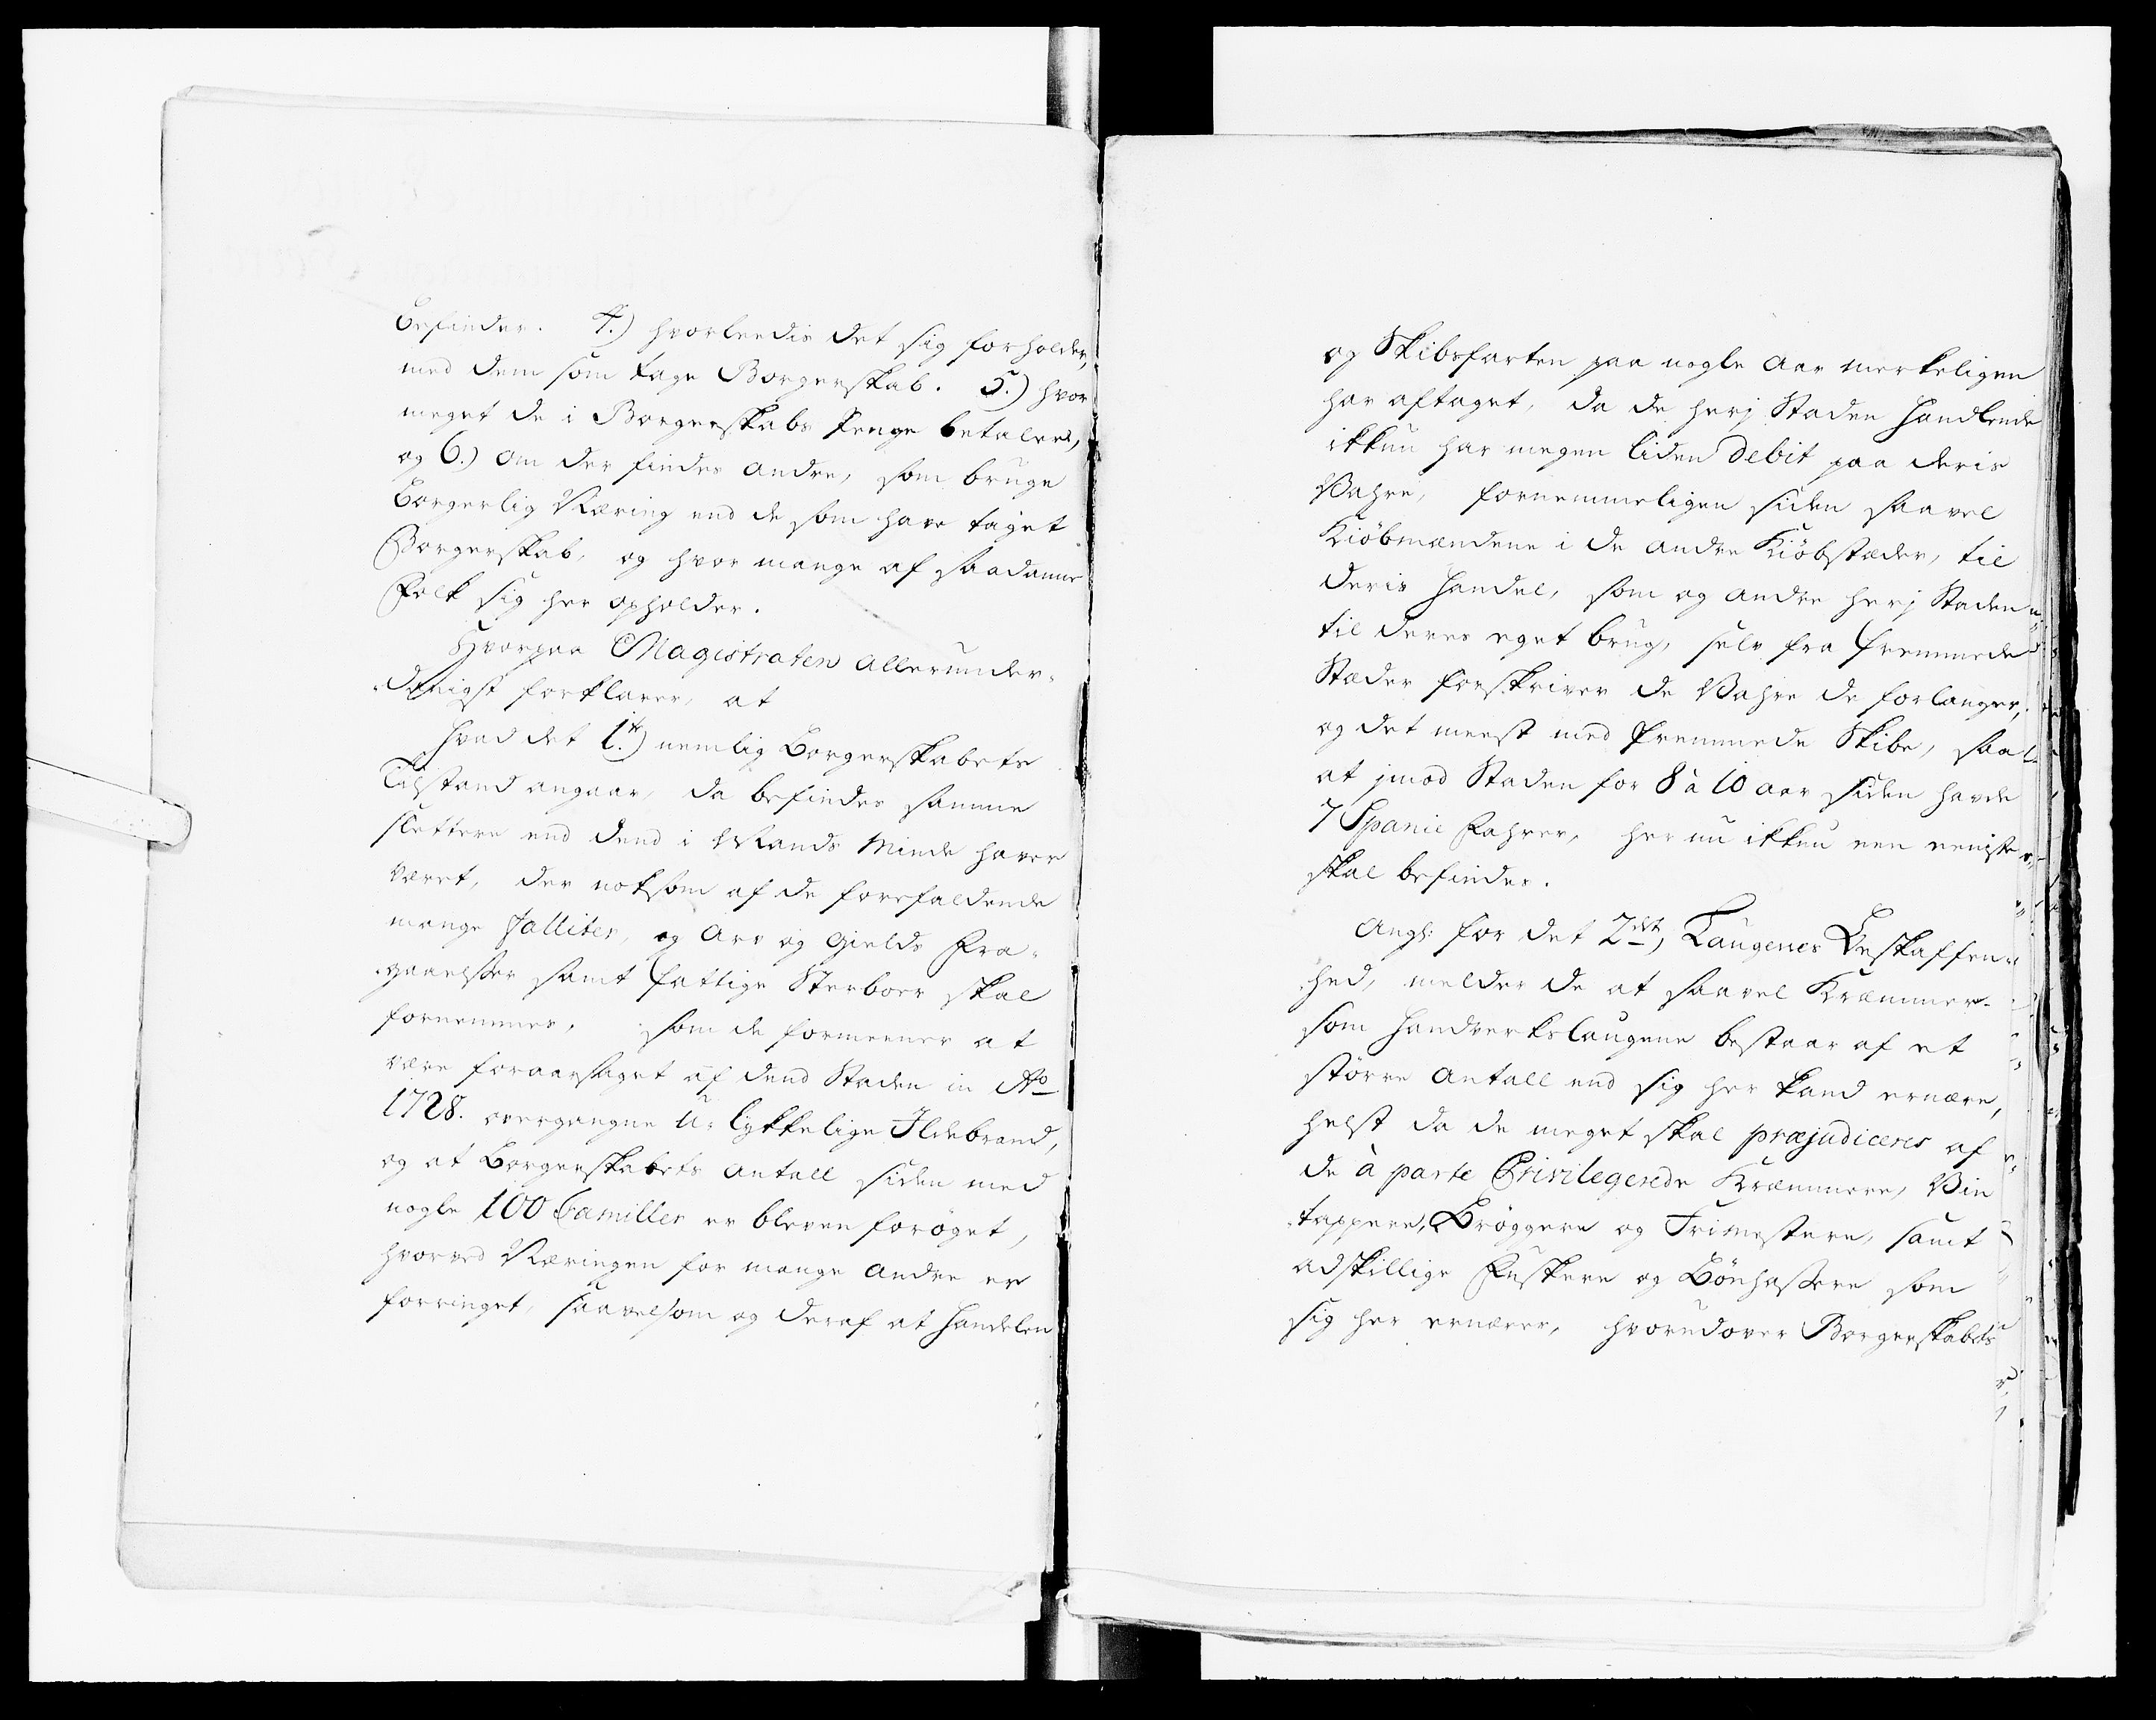 befinder. 4.) hvorleedis det sig forholder,
med dem som tage Borgerskab. 5.) hvor
meget de i Borgerskabs Penge betaler,
og 6.) om der findes andre, som bruge
Borgerlig Næring end de som have taget
Borgerskab, og hvor mange af saadanne
Folk sig her opholder.
Hvorpaa Magistraten allerunder-
-danigst forklarer, at
Hvad det 1.te) nemlig Borgerskabets
Tilstand angaar, da befindes samme
slettere end dend i Mands Minde haver
været, der noksom af de forefaldende
mange falliter, og Arv og Gields Fra-
-gaaelsser samt fattige Sterboer skal
fornemmes, som de formeener at
være foraarsaget af dend Staden in Ao
1728. overgangne U-lykkelige Ildebrand,
og at Borgerskabets Antall siden med
nogle 100 Familler er bleven forøget,
hvorved Næringen for mange andre er
forringet, saavelsom og deraf at Handelen
og Skibsfarten paa nogle Aar merkeligen
har aftaget, da de herj Staden Handlende
ikkun har megen liden debit paa deris
Vahre, fornemmeligen siden saavel
Kiøbmændene i de andre Kiøbstæder, til
deris Handel, som og andre herj Staden
til deres eget brug, selv fra fremmede
Stæder forskriver de Vahre de forlanger,
og det meest med fremmede Skibe, saa
at jmod Staden for 8 à 10 aar siden havde
7 Spanie Fahrer, her nu ikkun een eeniste
skal befindes.
Angl: for det 2det, Laugenes Beskaffen-
-hed, melder de at saavel Kræmmer-
som Handverkslaugene bestaar af et
større Antall end sig her kand ernære,
helst da de meget skal præjudiceres af
de à parte Privilegerede Kræmmere, Viin
tappere, Brøggere og Frimestere, samt
adskillige Fuskere og Bønhassere som
sig her ernærer, hvorudover Borgerskabets